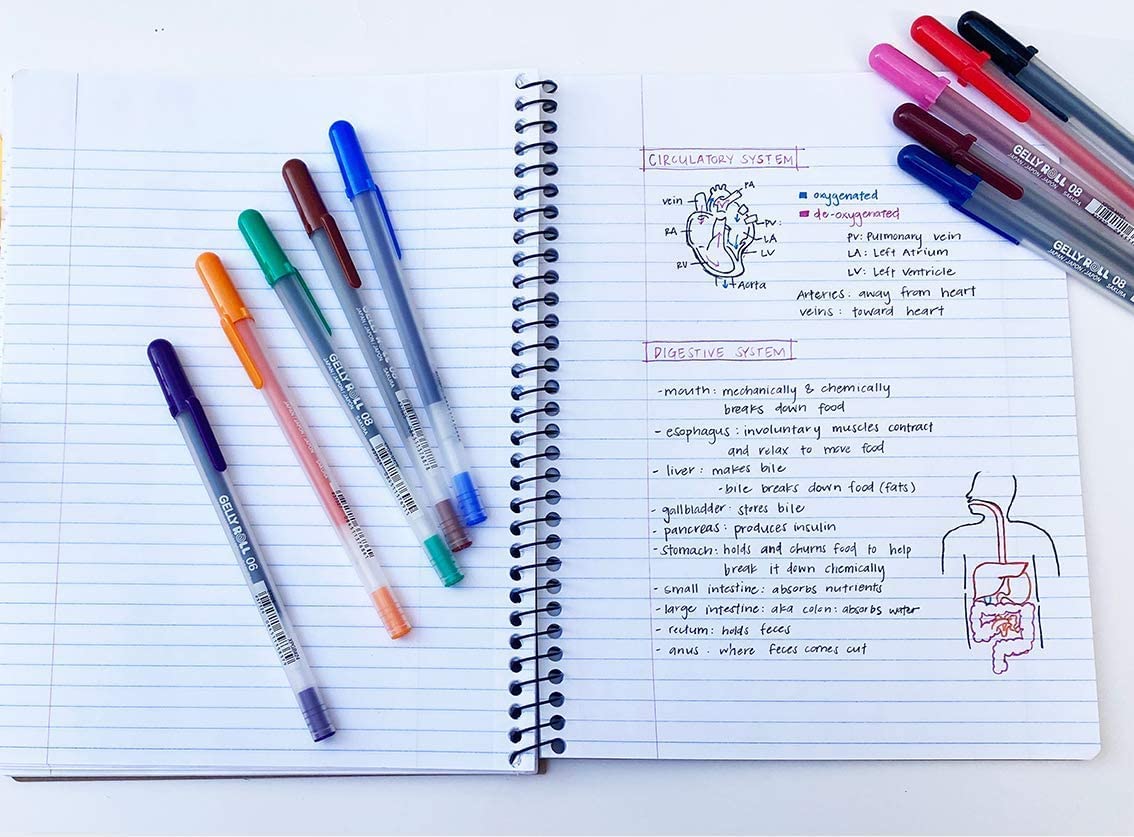 CIRCULATORY SYSTEM
vein
PA
RA
PV:
LA
LV
RV
Aorta
oxygenated
de-oxygenated
PV: Pulmonary vein
LA: Left Atrium
LV: Left Ventricle
Arteries: away from heart
veins: toward heart
DIGESTIVE SYSTEM
-mouth: mechanically & chemically
breaks down food
- esophagus: involuntary muscles contract
and relax to move food
- liver: makes bile
-bile breaks down food (fats)
- gallbladder: stores bile
- pancreas: produces insulin
-stomach: holds and churns food to help
break it down chemically
- small intestine: absorbs nutrients
- large intestine: aka colon: absorbs water
- rectum: holds feces
- anus: where feces comes out
GELLY ROLL 06
GELLY ROLL 08
JAPAN/JAPON/JAPÓN SAKURA
GELLY ROLL 08
JAPAN/JAPON/JAPÓN SAKURA
GELLY ROLL 08
JAPAN/JAPON/JAPÓN SAKURA